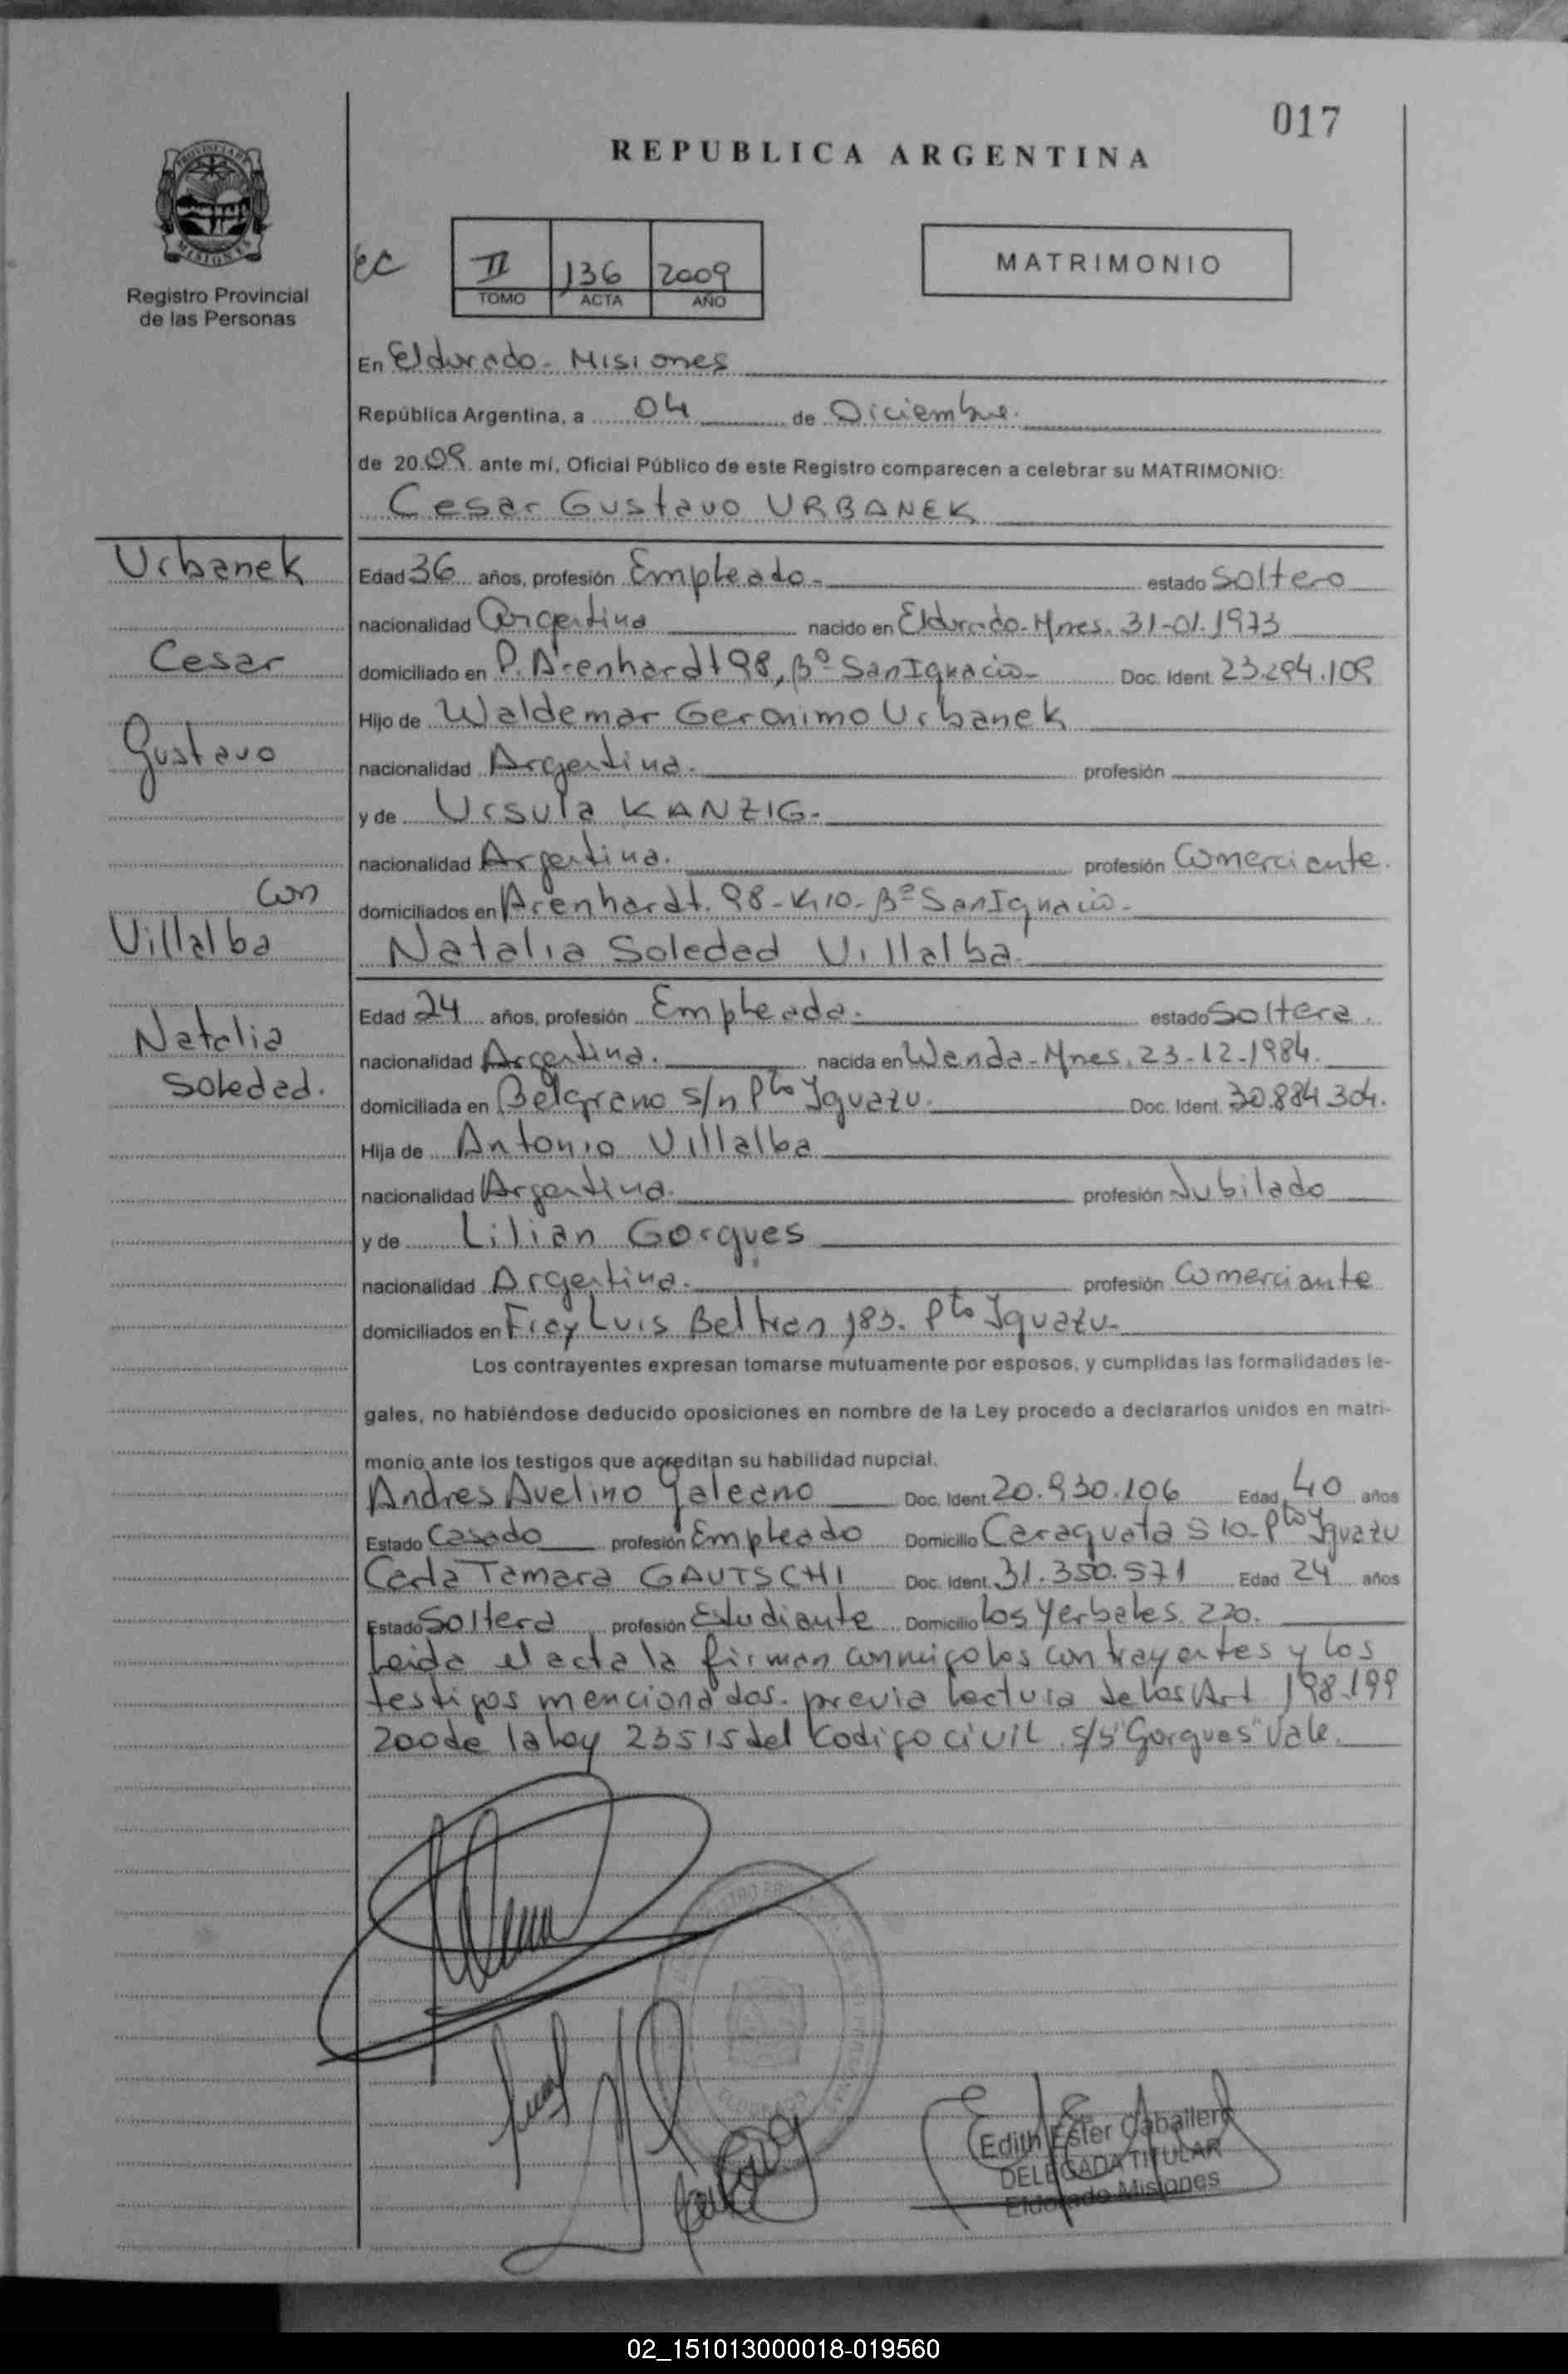 017
REPUBLICA ARGENTINA
PROVINCIA DE
MISIONES
Registro Provincial
de las Personas
EC
II 136 2009
TOMO ACTA AÑO
MATRIMONIO
En Eldorado - Misiones
República Argentina, a 04 de Diciembre.
de 2009 ante mí, Oficial Público de este Registro comparecen a celebrar su MATRIMONIO:
Cesar Gustavo URBANEK
Urbanek
Cesar
Gustavo
con
Villalba
Natalia
Soledad.
Edad 36 años, profesión Empleado- estado Soltero
nacionalidad Argentina nacido en Eldorado-Mnes. 31-01-1973
domiciliado en P. Arenhardt 98, Bº San Ignacio- Doc. Ident. 23.294.109
Hijo de Waldemar Geronimo Urbanek
nacionalidad Argentina. profesión
y de Ursula KANZIG.
nacionalidad Argentina. profesión Comerciante.
domiciliados en Arenhardt. 98-K10-Bº San Ignacio-
Natalia Soledad Villalba.
Edad 24 años, profesión Empleada. estado Soltera.
nacionalidad Argentina. nacida en Wanda-Mnes. 23-12-1984.
domiciliada en Belgrano s/n Pto Iguazu. Doc. Ident. 30.884.304.
Hija de Antonio Villalba
nacionalidad Argentina. profesión Jubilado
y de Lilian Gorgues
nacionalidad Argentina. profesión Comerciante
domiciliados en Fray Luis Beltran 183. Pto Iguazu-
Los contrayentes expresan tomarse mutuamente por esposos, y cumplidas las formalidades le-
gales, no habiéndose deducido oposiciones en nombre de la Ley procedo a declararlos unidos en matri-
monio ante los testigos que acreditan su habilidad nupcial.
Andres Avelino Galeano Doc. Ident. 20.930.106 Edad 40 años
Estado Casado profesión Empleado Domicilio Caraguata 510-Pto Iguazu
Carla Tamara GAUTSCHI Doc. Ident. 31.350.571 Edad 24 años
Estado Soltera profesión Estudiante Domicilio los Yerbales. 220.
Leida el acta la firman conmigo los contrayentes y los
testigos mencionados. previa lectura de los Art 198.199
200 de la ley 23515 del Codigo civil. s/s "Gorgues" Vale.
ELDORADO
Edith Ester Caballero
DELEGADA TITULAR
Eldorado Misiones
02_151013000018-019560